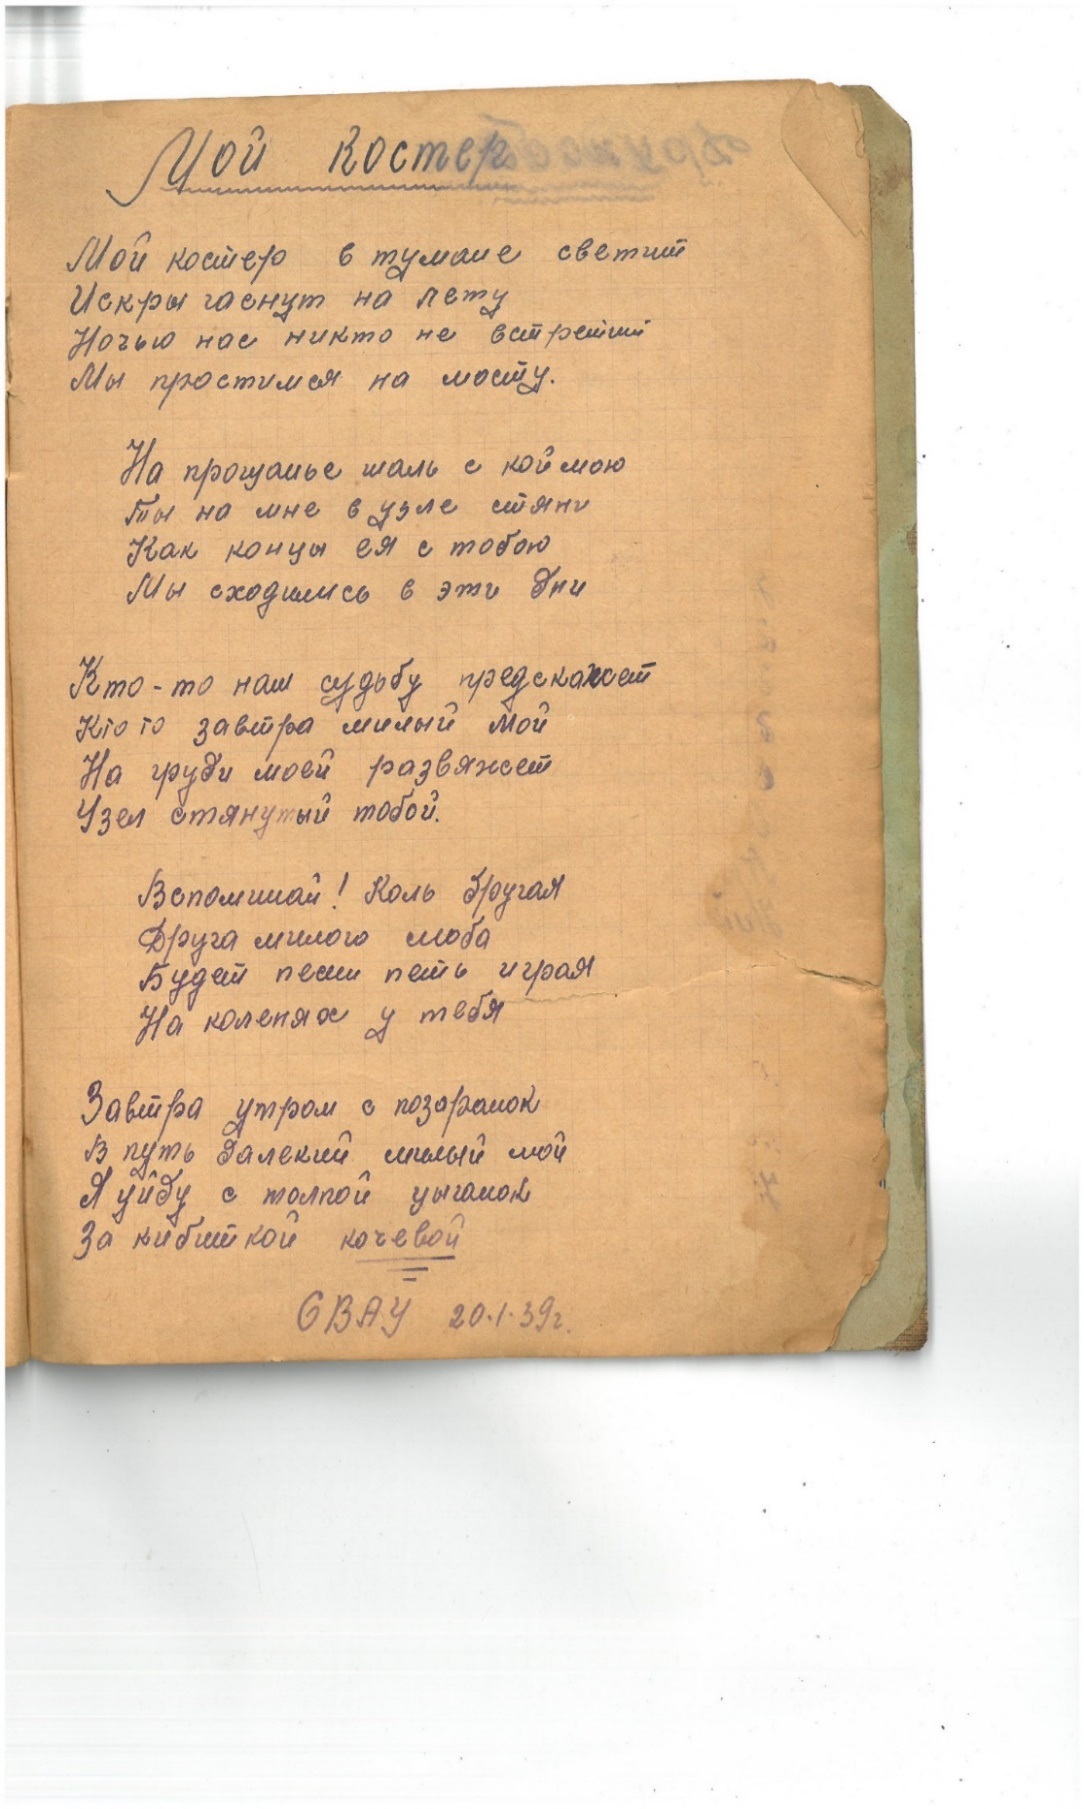 Мой костер
Мой костер в тумане светит
Искры гаснут на лету
Ночью нас никто не встретит
Мы простимся на мосту.
На прощанье шаль с коймою
Ты на мне в узле стяни
Как концы ея с тобою
Мы сходились в эти дни
Кто-то нам судьбу предскажет
Кто то завтра милый мой
На груди моей развяжет
Узел стянутый тобой.
Вспоминай! Коль другая
Друга милого люба
Будет песни петь играя
На коленях у тебя
Завтра утром с позаранок
В путь далекий милый мой
Я уйду с толпой цыганок
За кибиткой кочевой
20.1.39г.